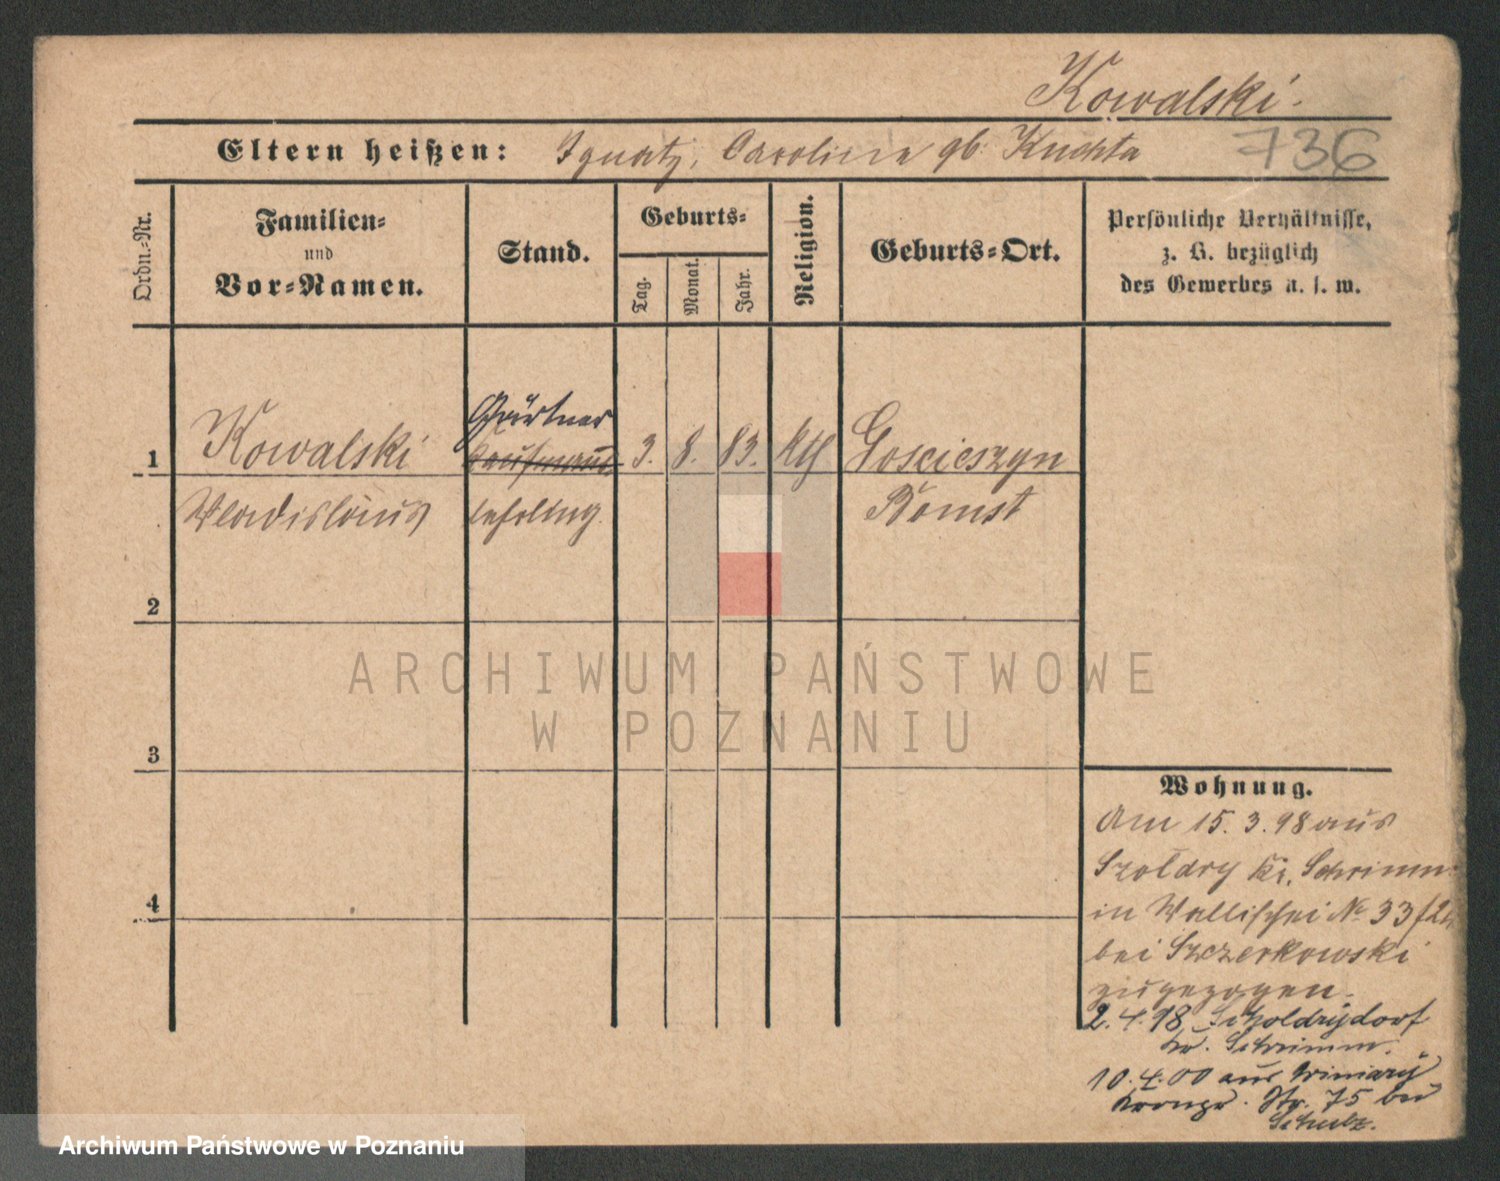 Kowalski.
736
Eltern heißen: Ignatz, Carolina gb. Kuchta
Ordn.-Nr.
Familien-
und
Vor-Namen.
Stand.
Geburts-
Tag.
Monat.
Jahr.
Religion.
Geburts-Ort.
Persönliche Verhältnisse,
z. B. bezüglich
des Gewerbes u. s. w.
Gärtner
1 Kowalski Kaufmann 3. 8. 83. Kth Goscieszyn
Wladislaus lehrling. Bomst
2
3
4
Wohnung.
Am 15. 3. 98 aus
Szoldry Kr. Schrimm
in Wallischei No 33/24
bei Szczerkowski
zugezogen.
2.4.98 Scholdrydorf
Kr. Schrimm.
10.4.00 aus Winiary
Kronpr. Str. 75 bei
Schulz.
ARCHIWUM PAŃSTWOWE
W POZNANIU
Archiwum Państwowe w Poznaniu